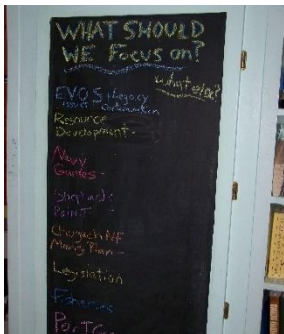 WHAT SHOULD
WE FOCUS on?
what else?
EVOS + Legacy
issues Contamination
Resource
Development -
Navy
Guides -
Shephard
POINT -
Chugach NF
Mining Plan -
Legislation
Fisheries